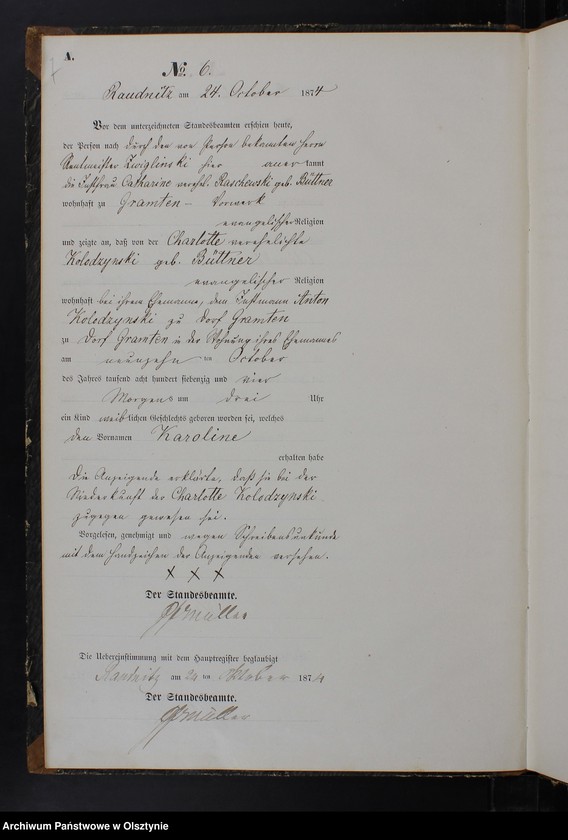 A.
No. 6.
Raudnitz am 24. October 1874
Vor dem unterzeichneten Standesbeamten erschien heute,
der Person nach durch den von Person bekannten Herrn
Rentmeister Zwiglinski hier anerkannt
die Instfrau Catharine verehl. Raschewski geb. Büttner
wohnhaft zu Gramten - Vorwerk
evangelischer Religion
und zeigte an, daß von der Charlotte verehelichte
Kolodzynski geb. Büttner
evangelischer Religion
wohnhaft bei ihrem Ehemanne, dem Instmann Anton
Kolodzynski zu Dorf Gramten
zu Dorf Gramten in der Wohnung ihres Ehemannes
am neunzehn ten October
des Jahres tausend acht hundert siebenzig und vier
Morgens um drei Uhr
ein Kind weiblichen Geschlechts geboren worden sei, welches
den Vornamen Karoline
erhalten habe
Die Anzeigende erklärte, daß sie bei der
Niederkunft der Charlotte Kolodzynski
zugegen gewesen sei.
Vorgelesen, genehmigt und wegen Schreibensunkunde
mit dem Handzeichen der Anzeigenden versehen.
X X X
Der Standesbeamte.
Müller
Die Uebereinstimmung mit dem Hauptregister beglaubigt
Raudnitz am 24 ten Oktober 1874
Der Standesbeamte.
Müller
Archiwum Państwowe w Olsztynie